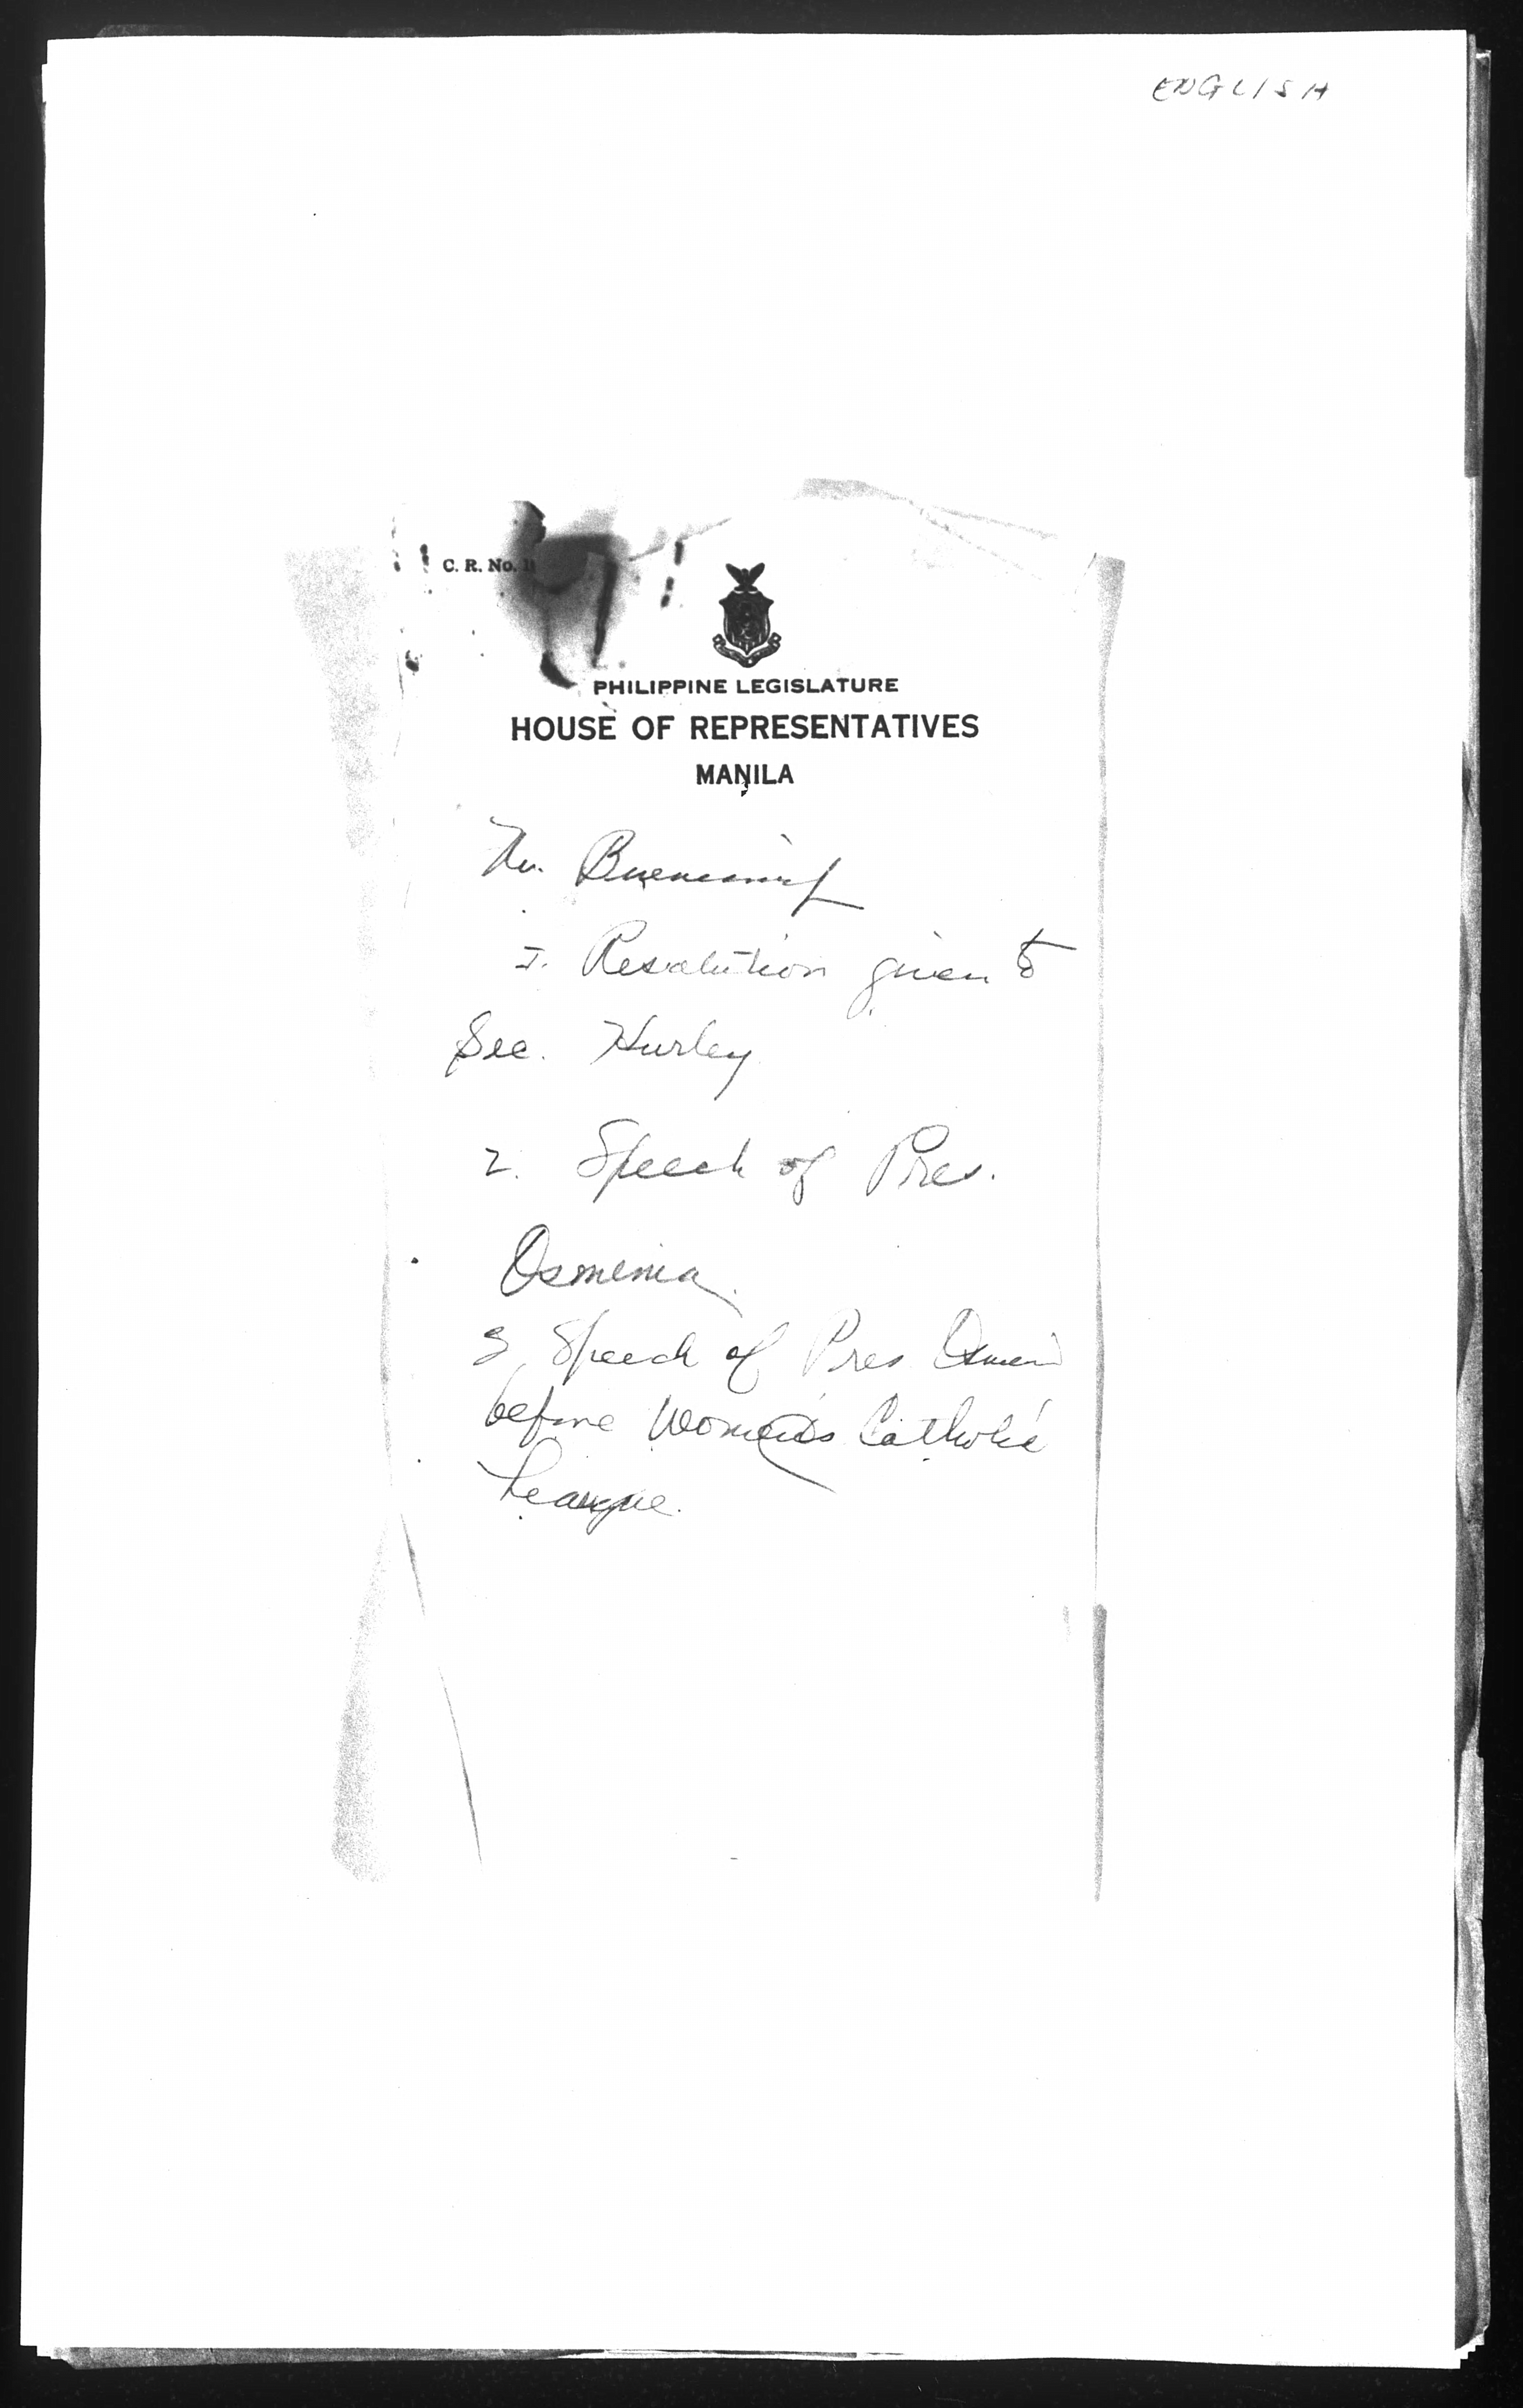 ENGLISH
C. R. No. 1
PHILIPPINE LEGISLATURE
HOUSE OF REPRESENTATIVES
MANILA
1. Resolution given to
Sec. Hurley
2. Speech of Pres.
Osmenia
3. Speech of Pres
before Women's Catholic
League.